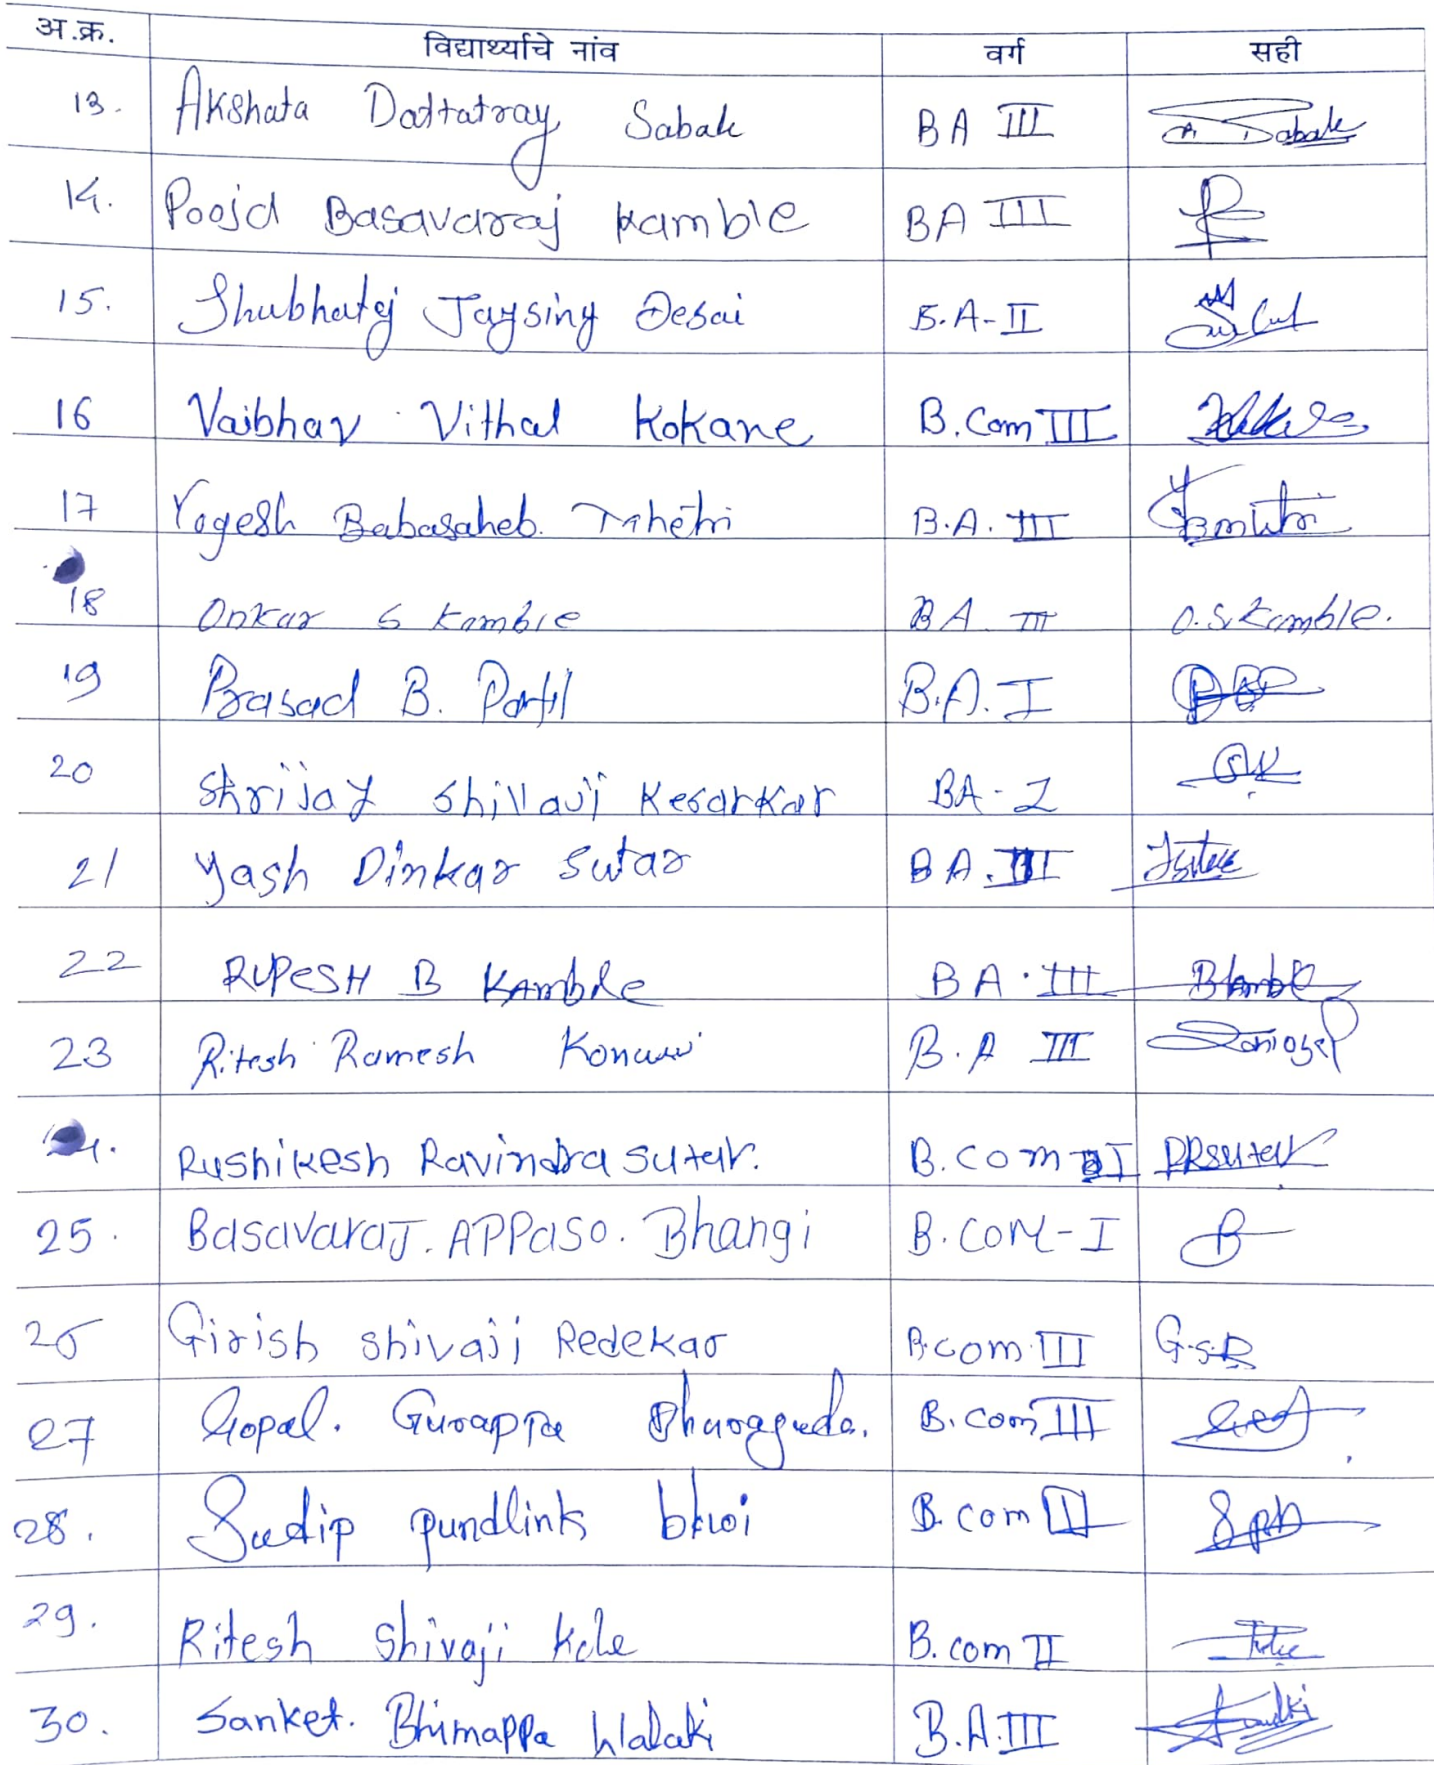 अ.क्र. विद्यार्थ्याचे नांव वर्ग सही
13. Akshata Dattatray Sabale BA III A. Sabale
14. Pooja Basavaraj Kamble BA III
15. Shubhatej Jaysing Desai B.A-II
16 Vaibhav Vithal Kokane B.Com III
17 Yogesh Babasaheb B.A. III
18 Onkar S Kamble BA III O.S.Kamble.
19 Prasad B. Patil B.A. I
20 Shrijay Shivaji Kesarkar BA-I
21 Yash Dinkar Sutar BA.III
22 RUPESH B KAmble BA.III
23 Ritesh Ramesh B.A III
Rushikesh Ravindra Sutar. B.com I RRSutar
25. Basavaraj. Appaso. Bhangi B.COM-I B
26 Girish Shivaji Redekar B.com.III G.S.R
27 Gopal. Gurappa B.com III
28. Sudip pundlink bhoi B.com III
29. Ritesh Shivaji Kole B.com II
30. Sanket. Bhimappa Walaki B.A.III